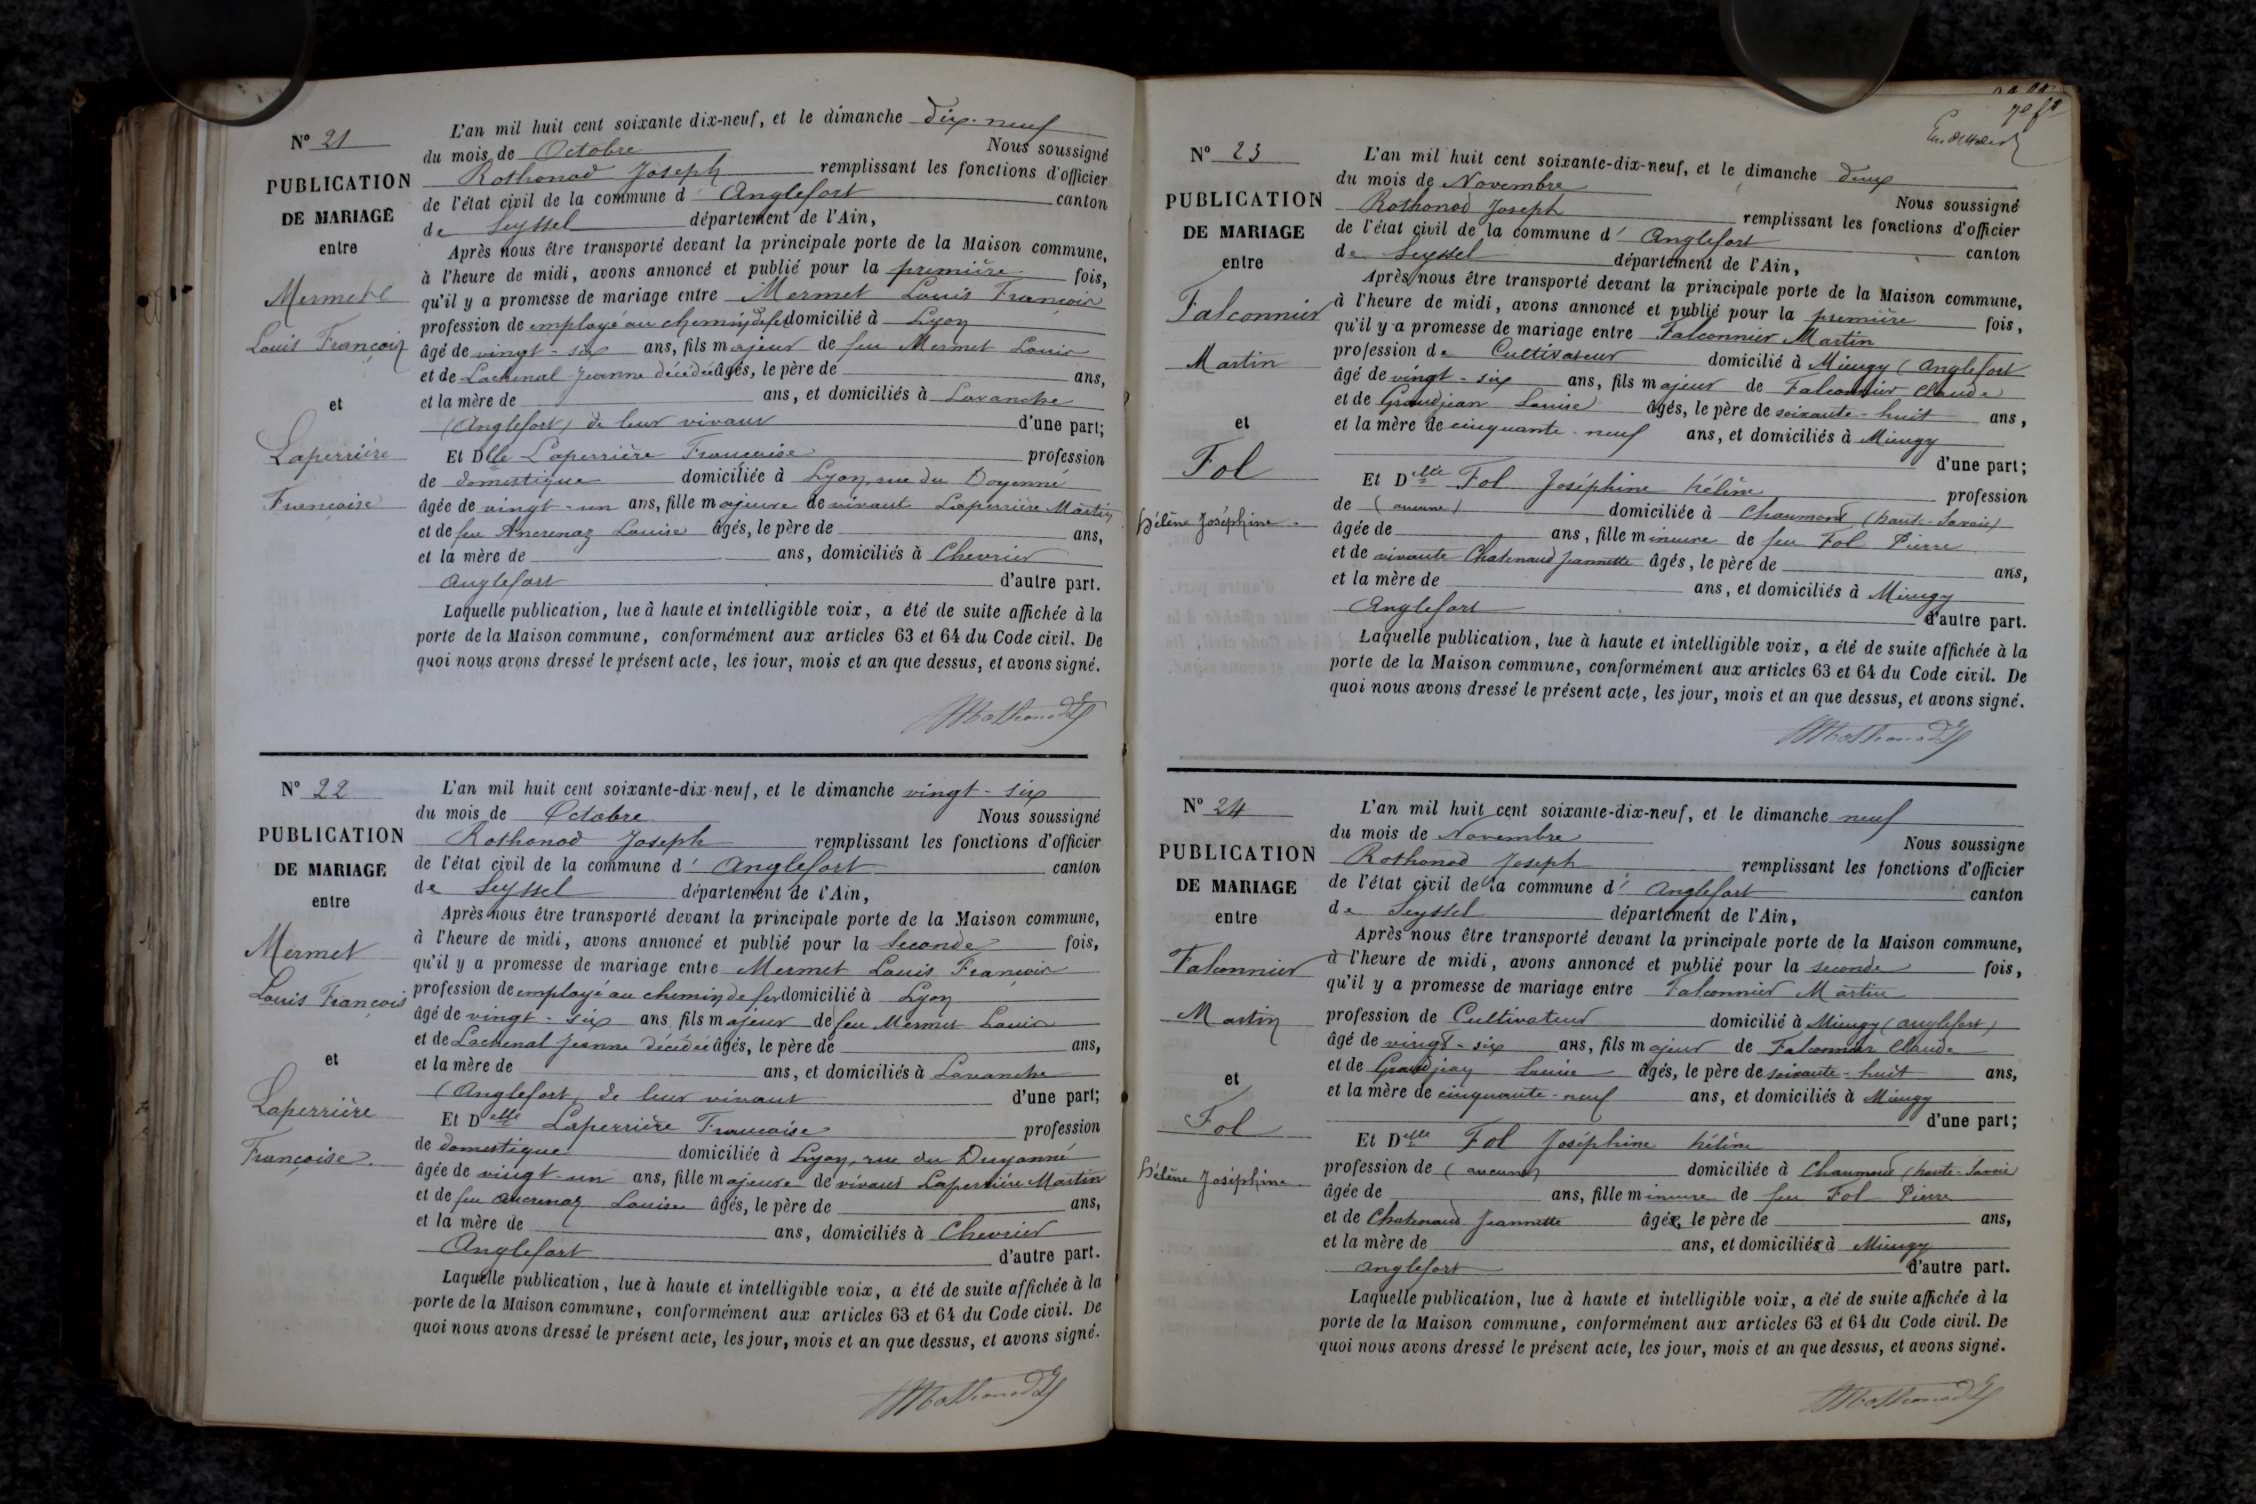 N° 21
PUBLICATION
DE MARIAGE
entre
Mermet
Louis François
et
Laperrière
Francoise
L'an mil huit cent soixante dix-neuf, et le dimanche dix-neuf
du mois de Octobre Nous soussigné
Rothonod Joseph remplissant les fonctions d'officier
de l'état civil de la commune d' Anglefort canton
de Seyssel département de l'Ain,
Après nous être transporté devant la principale porte de la Maison commune,
à l'heure de midi, avons annoncé et publié pour la première fois,
qu'il y a promesse de mariage entre Mermet Louis François
profession de employé au chemin de fer domicilié à Lyon
âgé de vingt-six ans, fils majeur de feu Mermet Louis
et de Lachenal Jeanne décédée âgés, le père de ans,
et la mère de ans, et domiciliés à Lavanche
(Anglefort) de leur vivant d'une part;
Et Dlle Laperrière Francoise profession
de domestique domiciliée à Lyon, rue du Doyenné
âgée de vingt-un ans, fille majeure de vivant Laperrière Martin
et de feu Ancrenaz Louise âgés, le père de ans,
et la mère de ans, domiciliés à Chevrier
Anglefort d'autre part.
Laquelle publication, lue à haute et intelligible voix, a été de suite affichée à la
porte de la Maison commune, conformément aux articles 63 et 64 du Code civil. De
quoi nous avons dressé le présent acte, les jour, mois et an que dessus, et avons signé.
N° 22
PUBLICATION
DE MARIAGE
entre
Mermet
Louis François
et
Laperrière
Françoise.
L'an mil huit cent soixante-dix-neuf, et le dimanche vingt-six
du mois de Octobre Nous soussigné
Rothonod Joseph remplissant les fonctions d'officier
de l'état civil de la commune d' Anglefort canton
de Seyssel département de l'Ain,
Après nous être transporté devant la principale porte de la Maison commune,
à l'heure de midi, avons annoncé et publié pour la seconde fois,
qu'il y a promesse de mariage entre Mermet Louis François
profession de employé au chemin de fer domicilié à Lyon
âgé de vingt-six ans, fils majeur de feu Mermet Louis
et de Lachenal Jeanne décédée âgés, le père de ans,
et la mère de ans, et domiciliés à Lavanche
(Anglefort) de leur vivant d'une part;
Et Delle Laperrière Francoise profession
de domestique domiciliée à Lyon, rue du Doyonné
âgée de vingt-un ans, fille majeure de vivant Laperrière Martin
et de feu Ancrenaz Louise âgés, le père de ans,
et la mère de ans, domiciliés à Chevrier
Anglefort d'autre part.
Laquelle publication, lue à haute et intelligible voix, a été de suite affichée à la
porte de la Maison commune, conformément aux articles 63 et 64 du Code civil. De
quoi nous avons dressé le présent acte, les jour, mois et an que dessus, et avons signé.
N° 23
PUBLICATION
DE MARIAGE
entre
Falconnier
Martin
et
Fol
hélène Joséphine
L'an mil huit cent soixante-dix-neuf, et le dimanche deux
du mois de Novembre Nous soussigné
Rothonod Joseph remplissant les fonctions d'officier
de l'état civil de la commune d' Anglefort canton
de Seyssel département de l'Ain,
Après nous être transporté devant la principale porte de la Maison commune,
à l'heure de midi, avons annoncé et publié pour la première fois,
qu'il y a promesse de mariage entre Falconnier Martin
profession de Cultivateur domicilié à Mieugy (Anglefort
âgé de vingt-six ans, fils majeur de Falconnier Claude
et de Grandjean Louise âgés, le père de soixante-huit ans,
et la mère de cinquante-neuf ans, et domiciliés à Mieugy
d'une part;
Et Delle Fol Joséphine hélène profession
de (aucune) domiciliée à Chaumont (haute-Savoie)
âgée de ans, fille mineure de feu Fol Pierre
et de vivante Chatenaud Jeannette âgés, le père de ans,
et la mère de ans, et domiciliés à Mieugy
Anglefort d'autre part.
Laquelle publication, lue à haute et intelligible voix, a été de suite affichée à la
porte de la Maison commune, conformément aux articles 63 et 64 du Code civil. De
quoi nous avons dressé le présent acte, les jour, mois et an que dessus, et avons signé.
N° 24
PUBLICATION
DE MARIAGE
entre
Falconnier
Martin
et
Fol
hélène Joséphine
L'an mil huit cent soixante-dix-neuf, et le dimanche neuf
du mois de Novembre Nous soussigne
Rothonod Joseph remplissant les fonctions d'officier
de l'état civil de la commune d' Anglefort canton
de Seyssel département de l'Ain,
Après nous être transporté devant la principale porte de la Maison commune,
à l'heure de midi, avons annoncé et publié pour la seconde fois,
qu'il y a promesse de mariage entre Falconnier Martin
profession de Cultivateur domicilié à Mieugy (anglefort)
âgé de vingt-six ans, fils majeur de Falconnier Claude
et de Grandjean Louise âgés, le père de soixante-huit ans,
et la mère de cinquante-neuf ans, et domiciliés à Mieugy
d'une part;
Et Delle Fol Joséphine hélène
profession de (aucune) domiciliée à Chaumont (haute-Savoie
âgée de ans, fille mineure de feu Fol Pierre
et de Chatenaud Jeannette âgés, le père de ans,
et la mère de ans, et domiciliés à Mieugy
anglefort d'autre part.
Laquelle publication, lue à haute et intelligible voix, a été de suite affichée à la
porte de la Maison commune, conformément aux articles 63 et 64 du Code civil. De
quoi nous avons dressé le présent acte, les jour, mois et an que dessus, et avons signé.